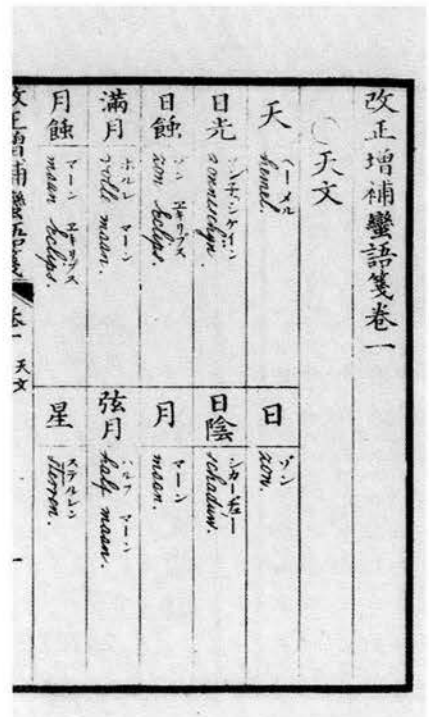 改正増補蠻語箋卷一
天文
天
ヘーメル
hemel.
日
ゾン
zon.
日光
ゾンネシケイン
zonneschyn.
日陰
シカーデュー
schaduw.
日蝕
ゾン エキリプス
zon Eclips.
月
マーン
maan.
満月
ホルレ マーン
volle maan.
弦月
ハルフ マーン
half maan.
月蝕
マーン エキリプス
maan Eclips.
星
ステルレン
sterren.
改正増補蠻語箋 卷一 天文 一